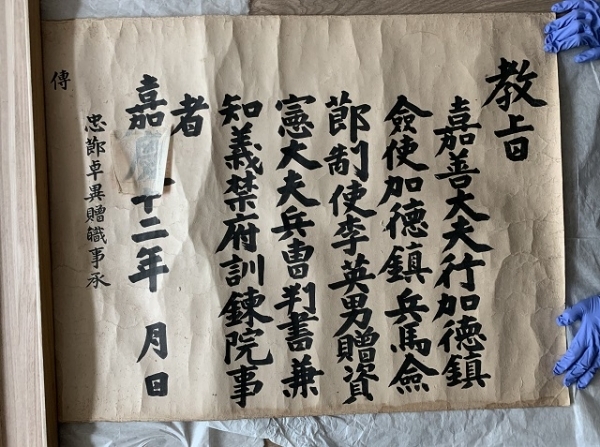 教旨
嘉善大夫行加德鎮
僉使加德鎮兵馬僉
節制使李英男贈資
憲大夫兵曹判書兼
知義禁府訓鍊院事
者
嘉慶十二年 月 日
忠節卓異贈職事承
傳